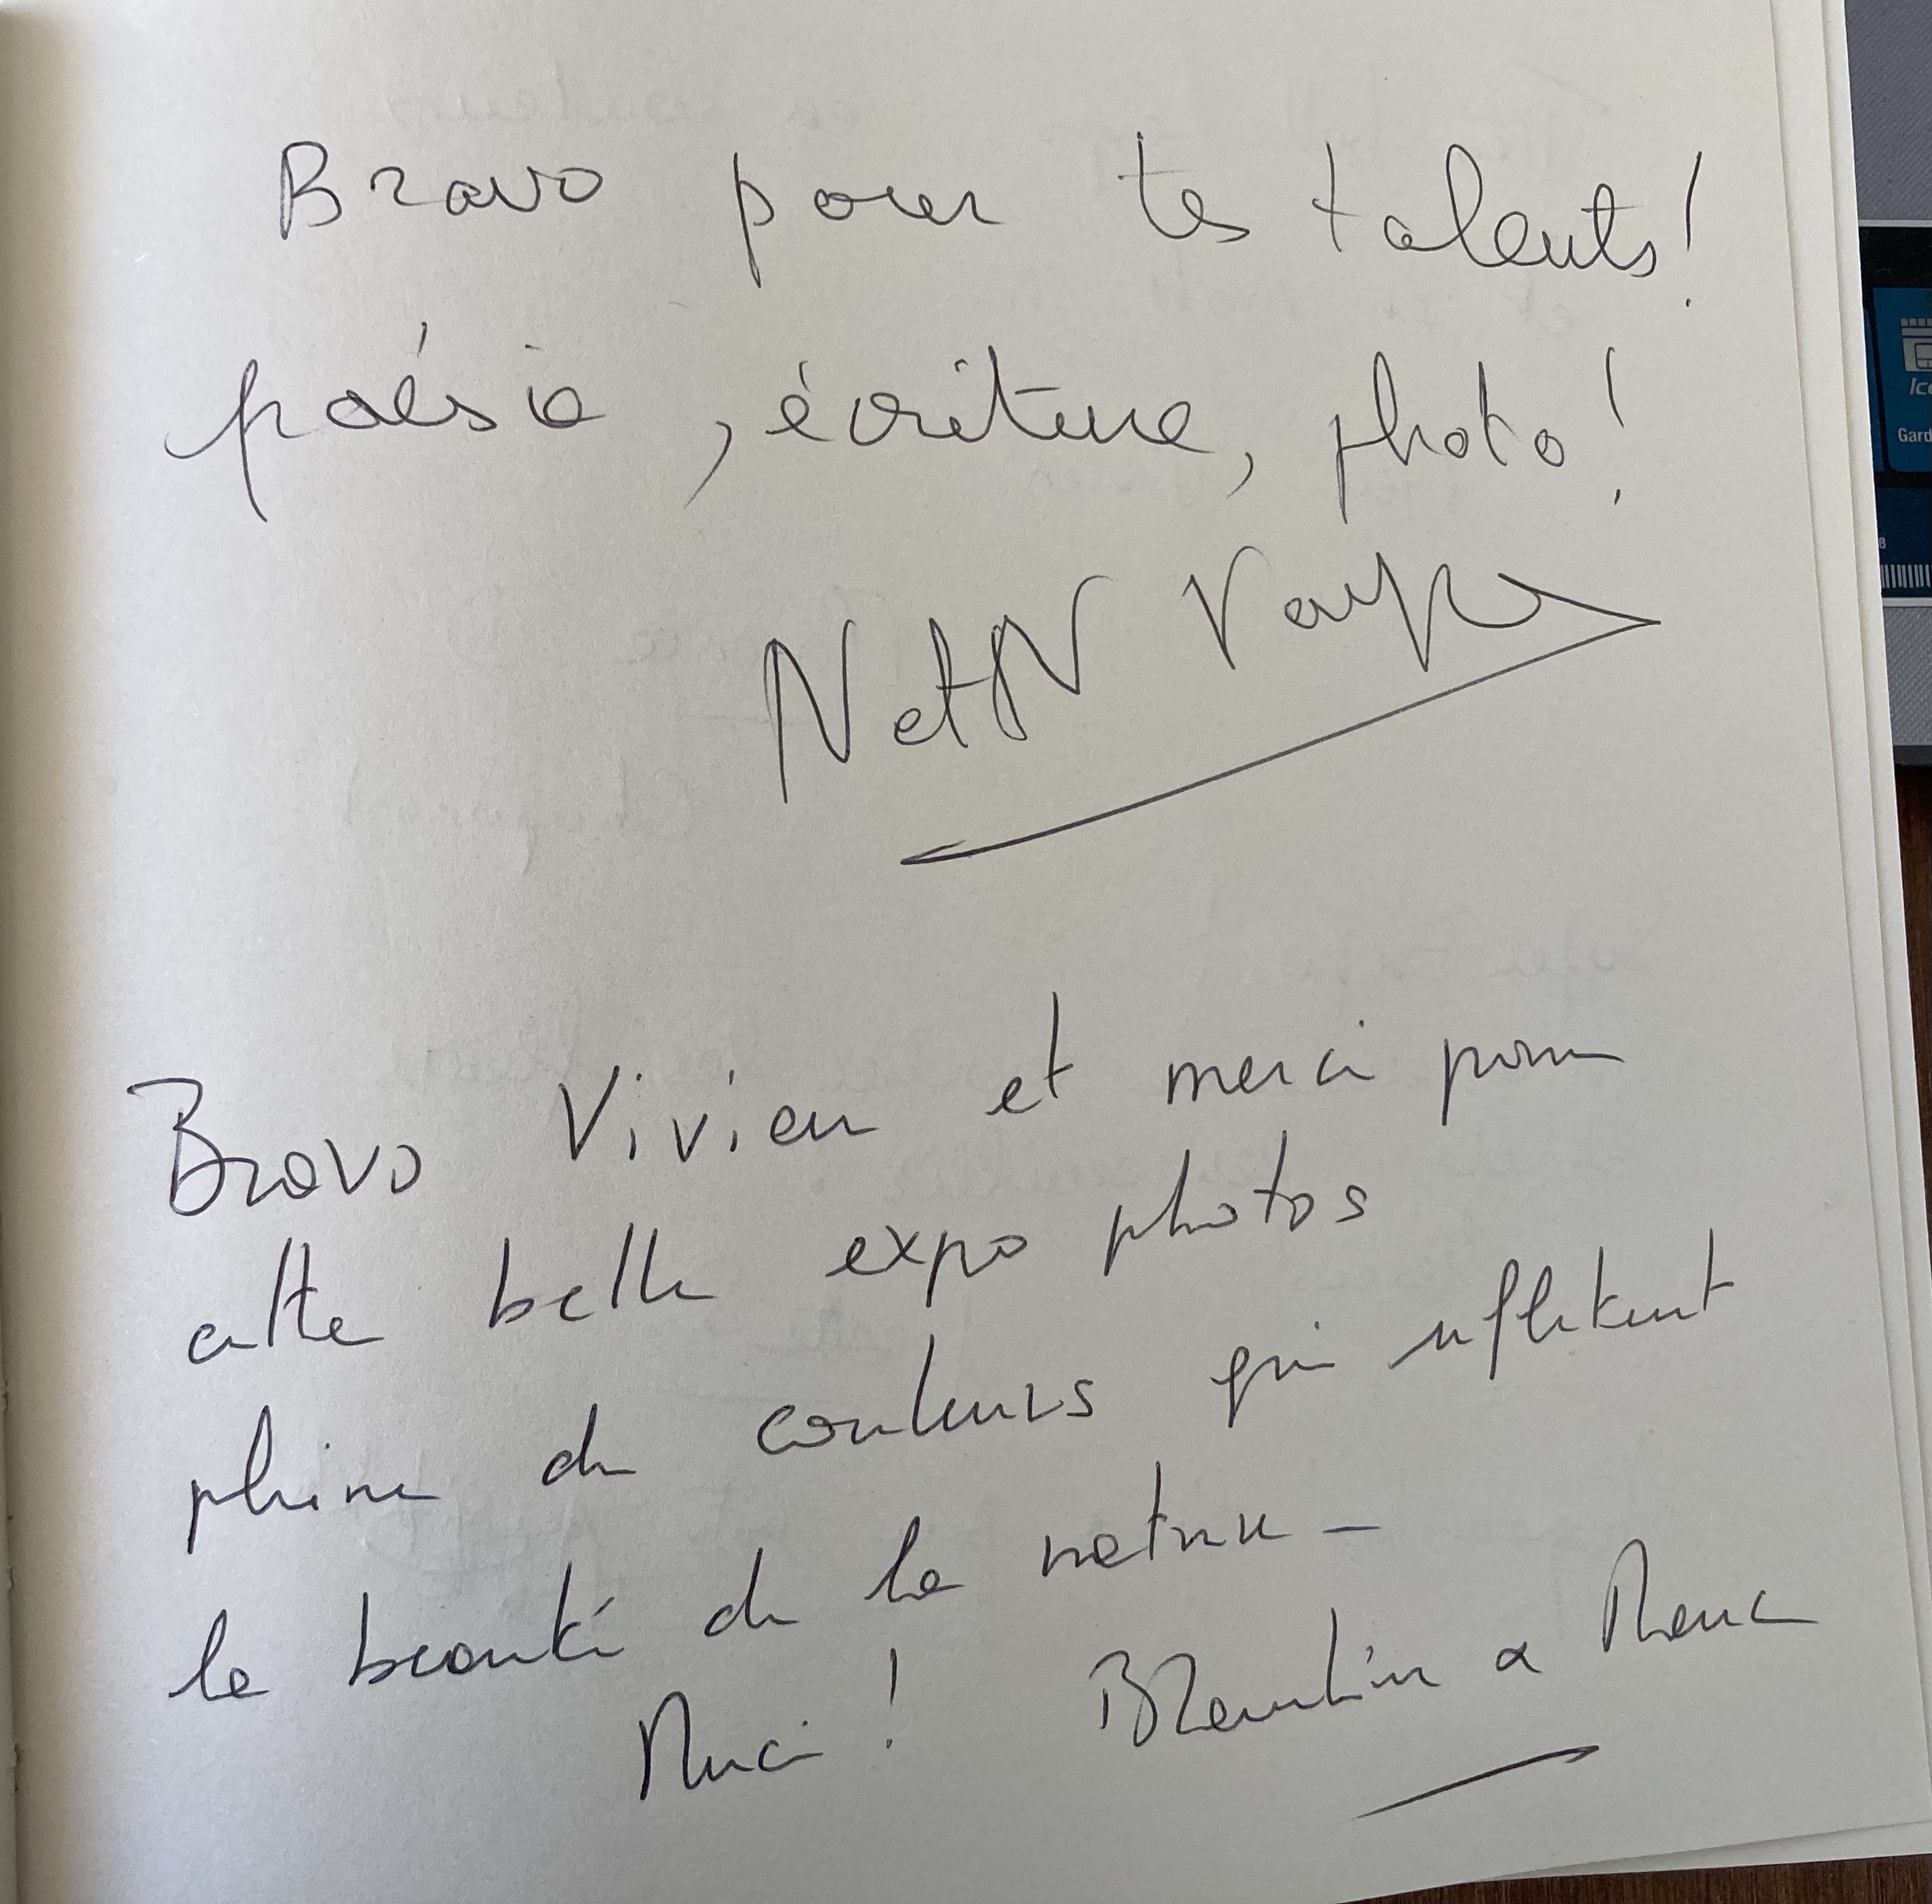 Bravo pour tes talents !
poésie, écriture, photo !
N et N
Bravo Vivien et merci pour
cette belle expo photos
pleine de couleurs qui reflètent
la beauté de la nature -
Merci !
Gard